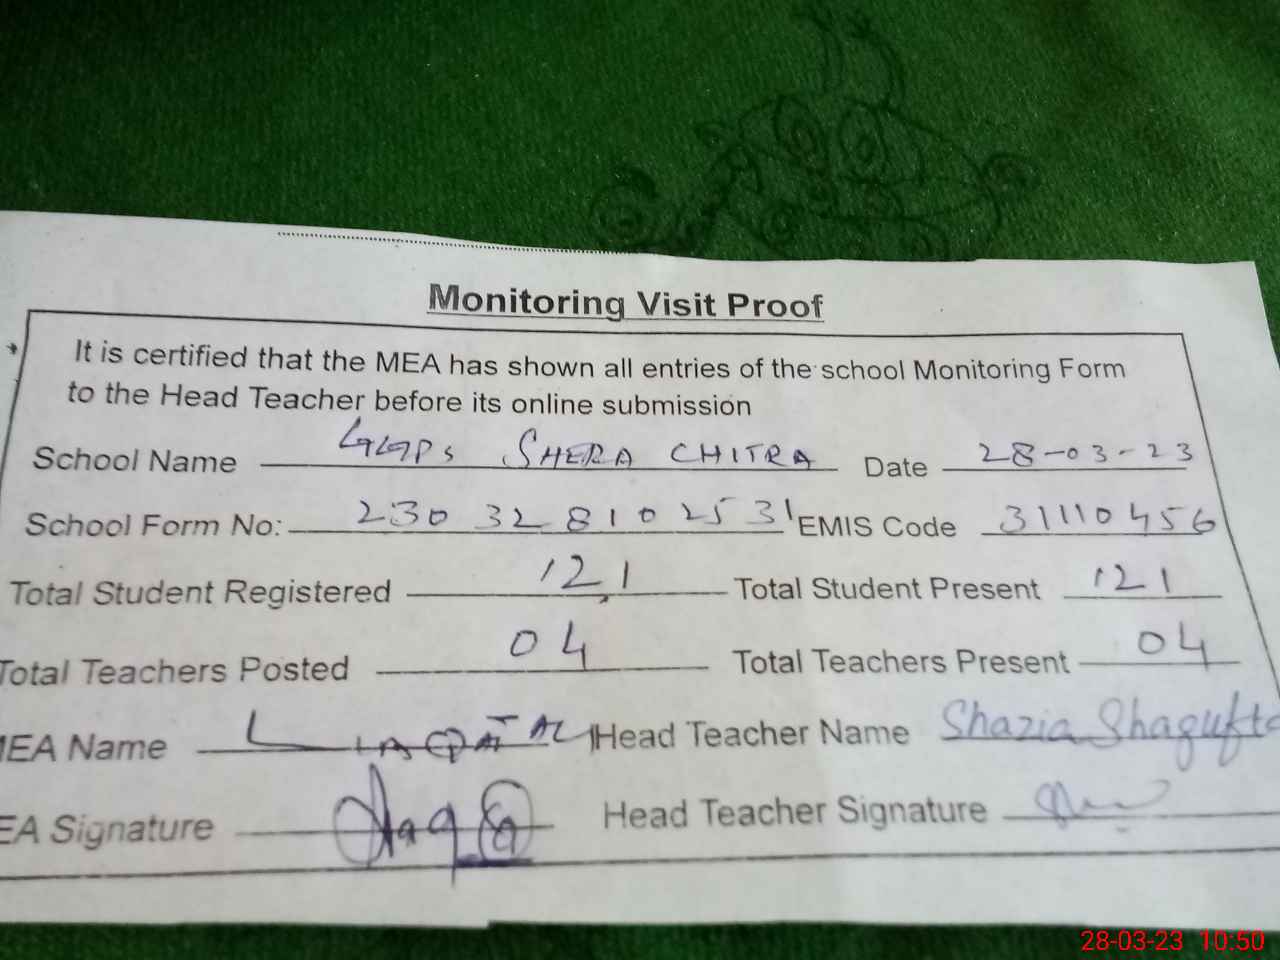 Monitoring Visit Proof
It is certified that the MEA has shown all entries of the school Monitoring Form
to the Head Teacher before its online submission
School Name GGPS SHERA CHITRA Date 28-03-23
School Form No: 230 32 8 10 25 31 EMIS Code 31110456
Total Student Registered 121 Total Student Present 121
Total Teachers Posted 04 Total Teachers Present 04
MEA Name Head Teacher Name Shazia Shagufta
EA Signature Head Teacher Signature
28-03-23 10:50